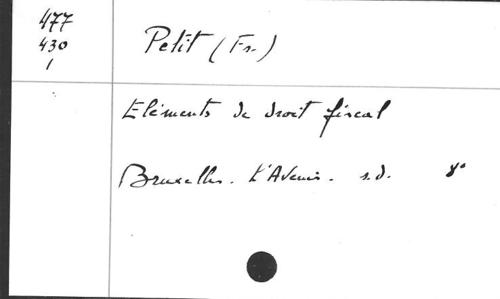 477
430
1
Petit (Fr.)
Eléments de droit fiscal
Bruxelles. L'Avenir. s.d. 8°